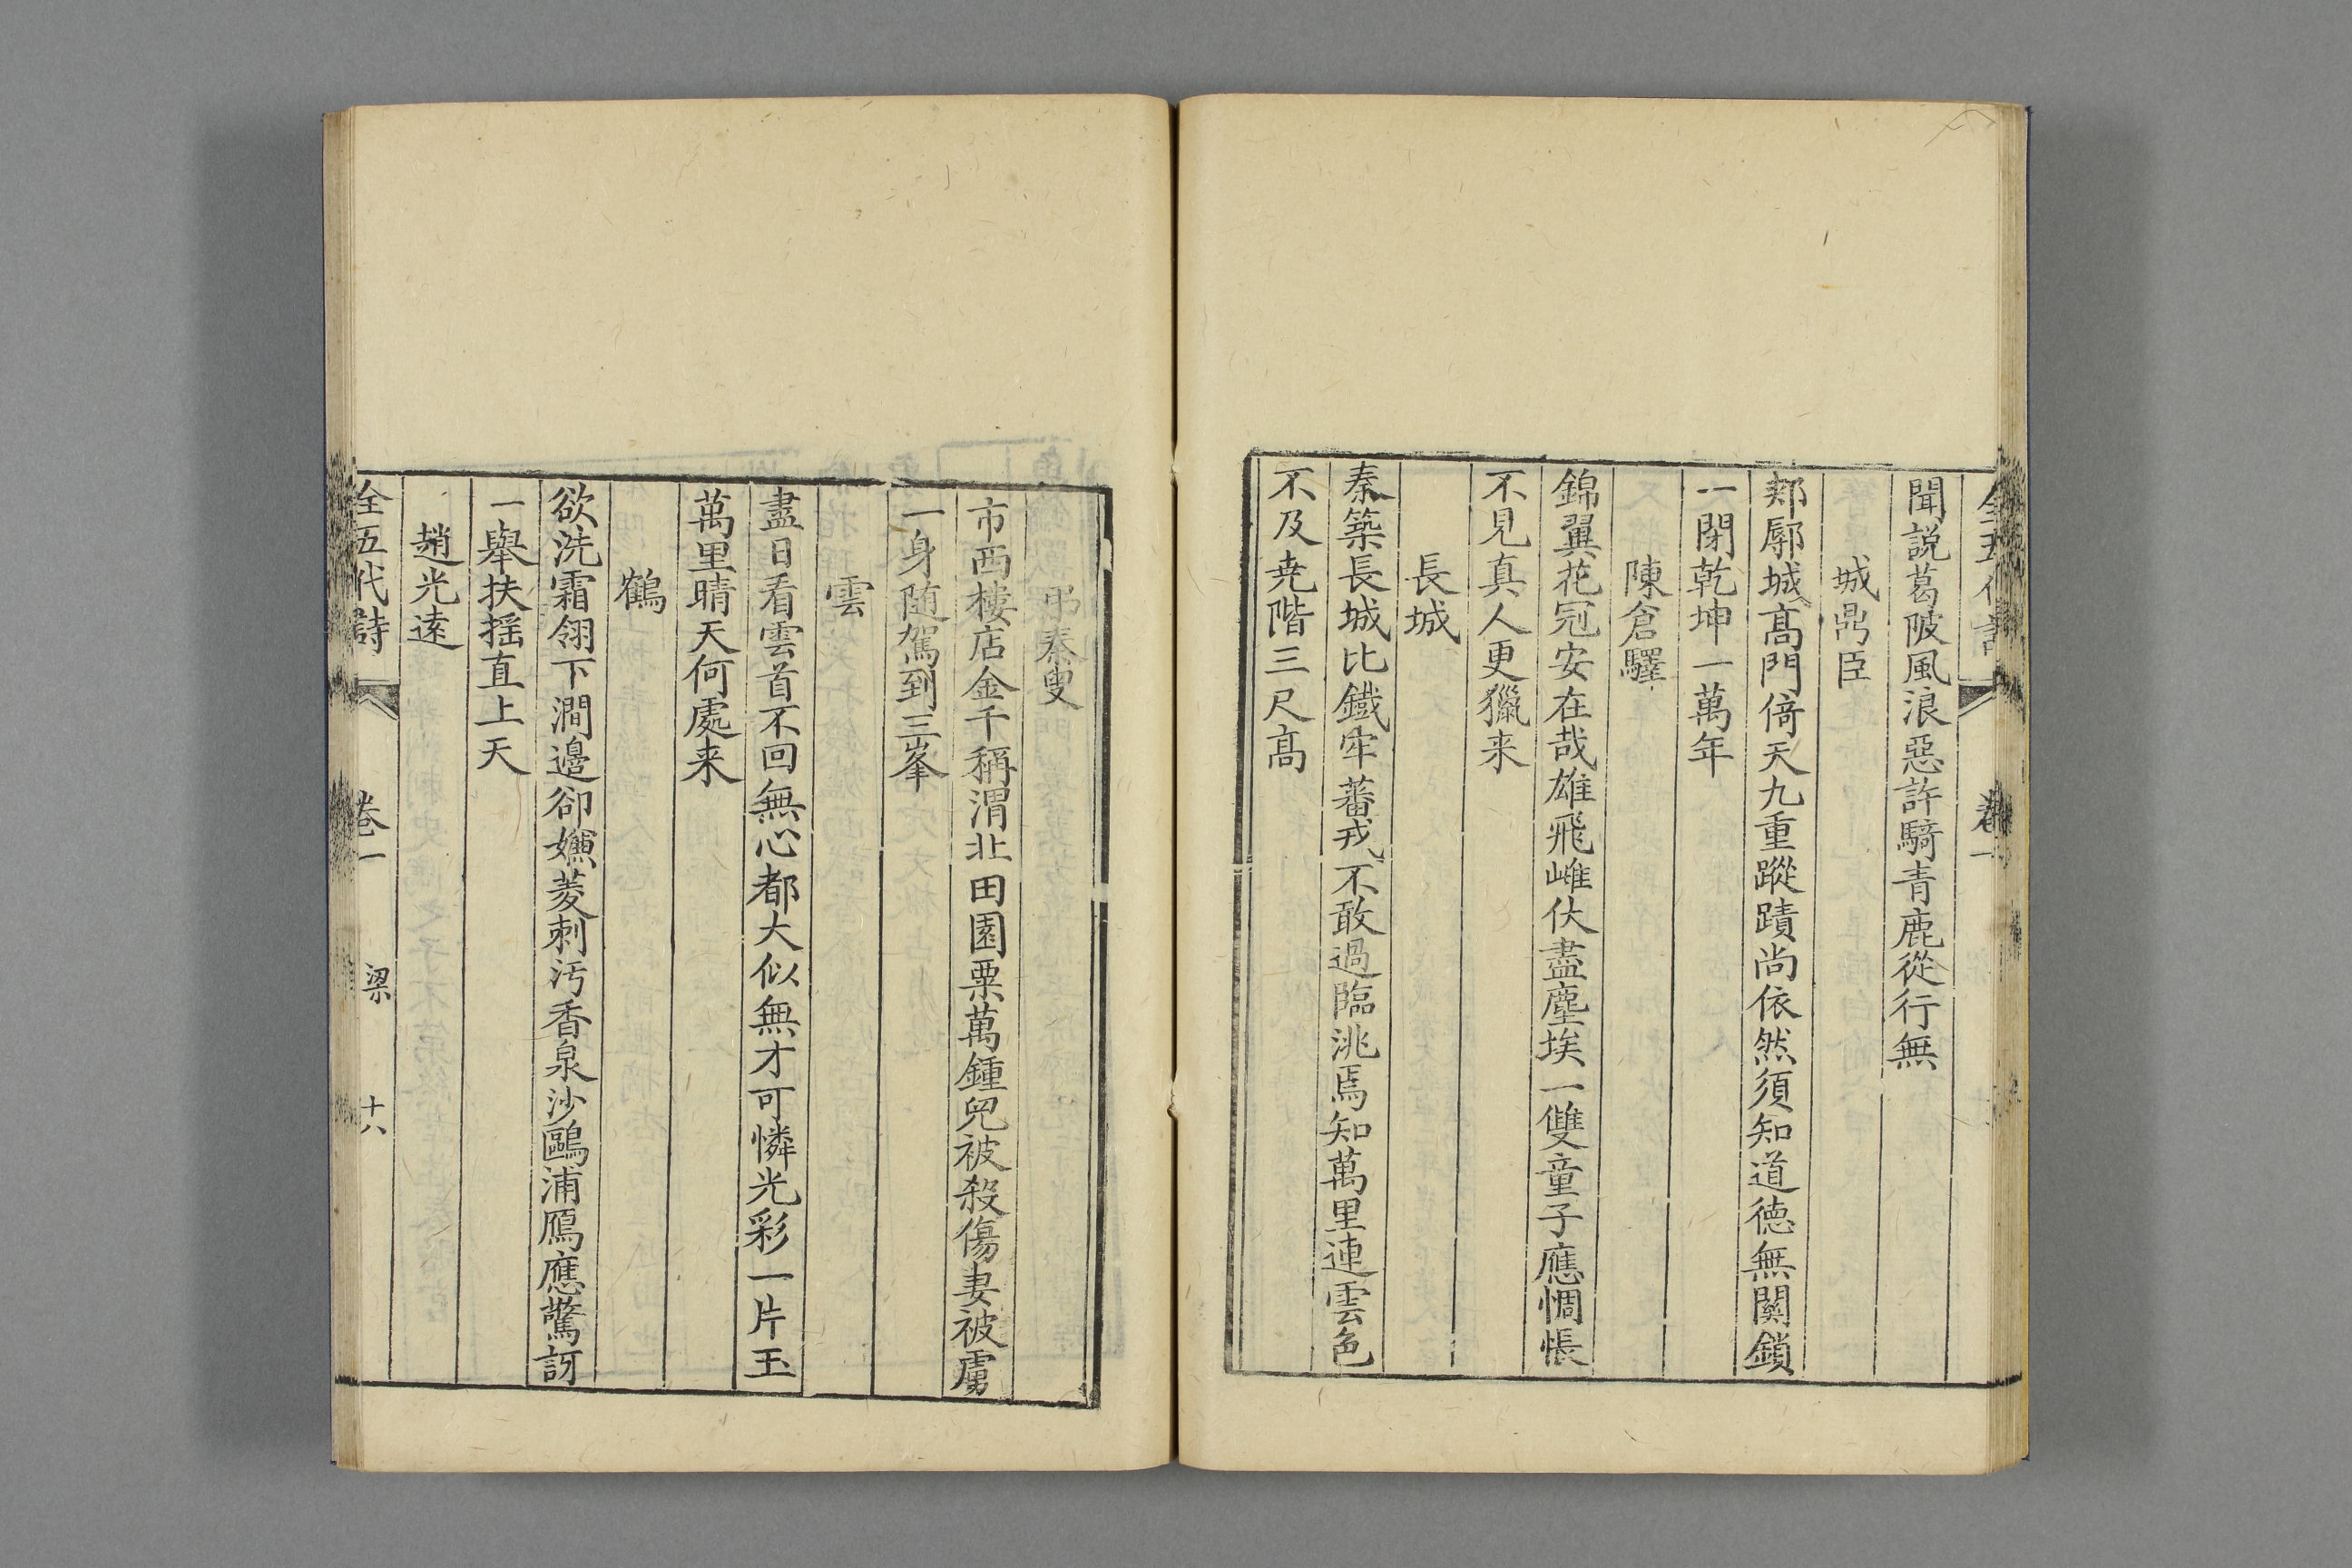 全五代詩 卷一
聞説葛陂風浪惡許騎青鹿從行無
城鼎臣
郏鄏城高門倚天九重蹤蹟尚依然須知道德無關鎖
一閉乾坤一萬年
陳倉驛
錦翼花冠安在哉雄飛雌伏盡塵埃一雙童子應惆悵
不見真人更獵来
長城
秦築長城比鐵牢蕃戎不敢過臨洮焉知萬里連雲色
不及尭階三尺高
弔秦叟
市西樓店金千稱渭北田園粟萬鍾兒被殺傷妻被虜
一身随駕到三峯
雲
盡日看雲首不回無心都大似無才可憐光彩一片玉
萬里晴天何處来
鶴
欲洗霜翎下澗邊卻嫌菱刺汚香泉沙鷗浦鴈應驚訝
一舉扶揺直上天
趙光逺
全五代詩 卷一 梁 十八